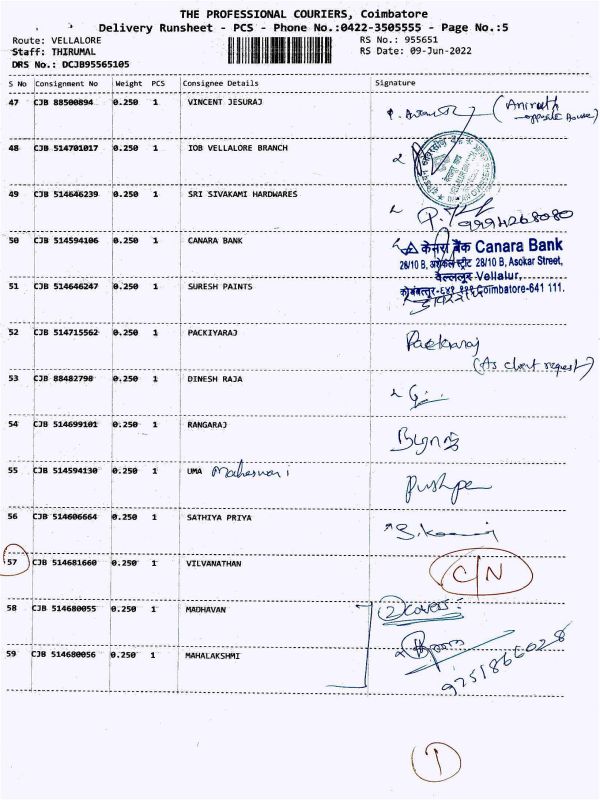 THE PROFESSIONAL COURIERS, Coimbatore
Delivery Runsheet - PCS - Phone No.:0422-3505555 - Page No.:5
Route: VELLALORE RS No.: 955651
Staff: THIRUMAL RS Date: 09-Jun-2022
DRS No.: DCJB95565105
S No Consignment No Weight PCS Consignee Details Signature
47 CJB 88500894 0.250 1 VINCENT JESURAJ (Anirudh
opposite house)
48 CJB 514701017 0.250 1 IOB VELLALORE BRANCH
49 CJB 514646239 0.250 1 SRI SIVAKAMI HARDWARES
9994268080
50 CJB 514594106 0.250 1 CANARA BANK केनरा बैंक Canara Bank
28/10 B, अशोकर स्ट्रीट 28/10 B, Asokar Street,
वेल्ललूर Vellalur,
51 CJB 514646247 0.250 1 SURESH PAINTS कोयंबत्तूर-६४१ १११ Coimbatore-641 111.
52 CJB 514715562 0.250 1 PACKIYARAJ Packiaraj
(As client request)
53 CJB 88482798 0.250 1 DINESH RAJA
54 CJB 514699101 0.250 1 RANGARAJ
55 CJB 514594130 0.250 1 UMA Maheswari Pushpa
56 CJB 514606664 0.250 1 SATHIYA PRIYA
57 CJB 514681660 0.250 1 VILVANATHAN C/N
58 CJB 514680055 0.250 1 MADHAVAN (2) covers:
59 CJB 514680056 0.250 1 MAHALAKSHMI
9251866028
1